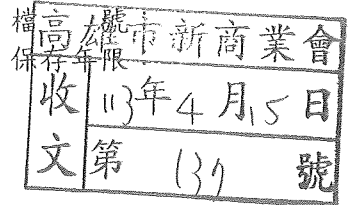 檔號
保存年限
高雄市新商業會
收文
113年4月15日
第137號